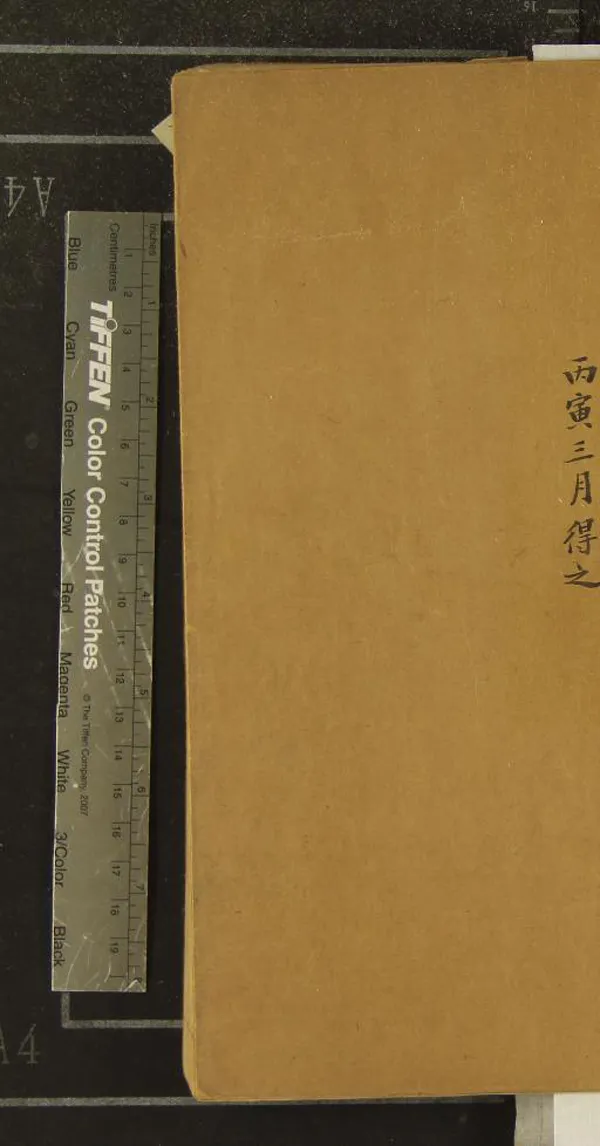 丙寅三月得之
Inches
Centimetres
1 2 3 4 5 6 7
1 2 3 4 5 6 7 8 9 10 11 12 13 14 15 16 17 18 19
TIFFEN® Color Control Patches
© The Tiffen Company, 2007
Blue Cyan Green Yellow Red Magenta White 3/Color Black
A4
A4